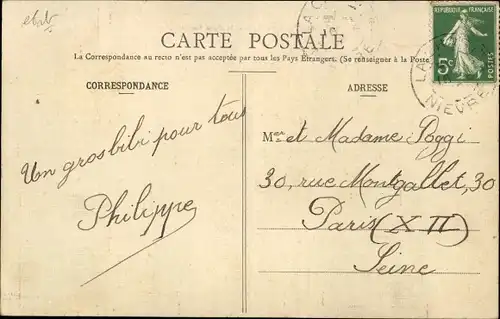 CARTE POSTALE
La Correspondance au recto n'est pas acceptée par tous les Pays Étrangers. (Se renseigner à la Poste
RÉPUBLIQUE FRANÇAISE
5c
POSTES
NIEVRE
CORRESPONDANCE
ADRESSE
Un gros bibi pour tous
Philippe
Mer et Madame Poggi
30, rue Montgallet, 30
Paris (XII)
Seine